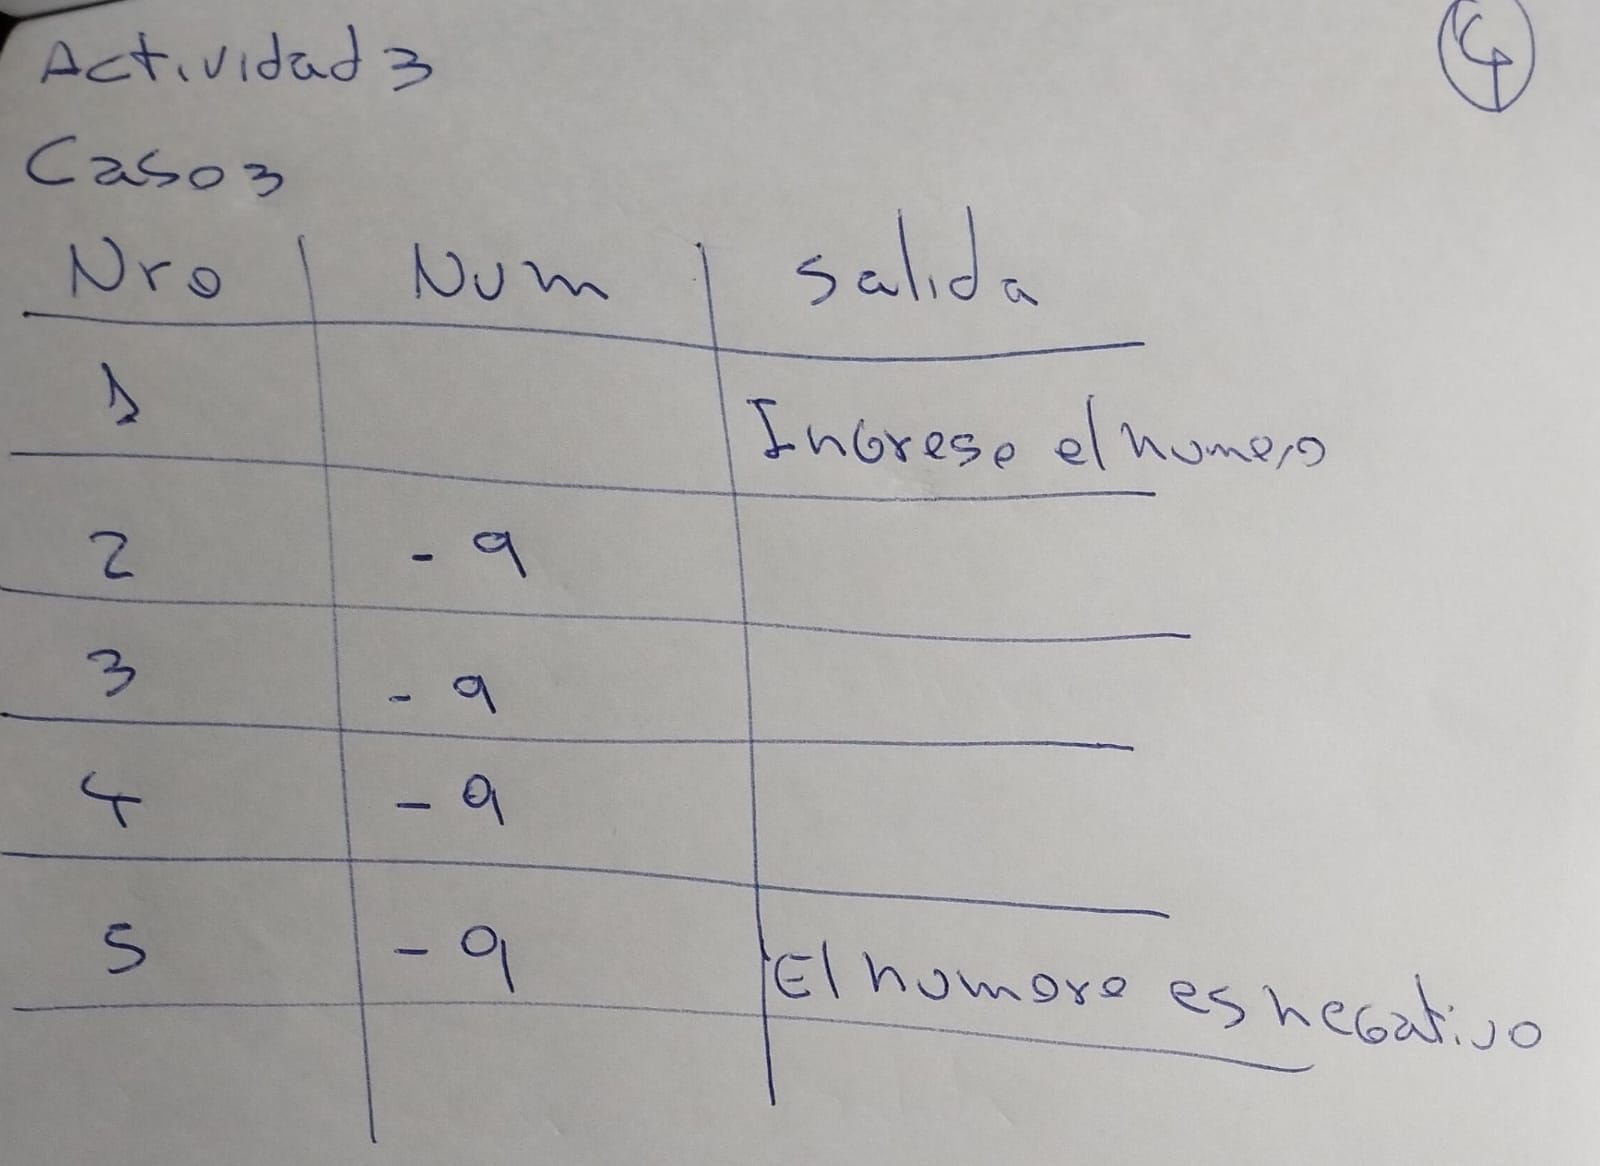 Actividad 3
Caso 3
Nro Num Salida
1 Ingrese el numero
2 - 9
3 - 9
4 - 9
5 - 9 El numero es negativo